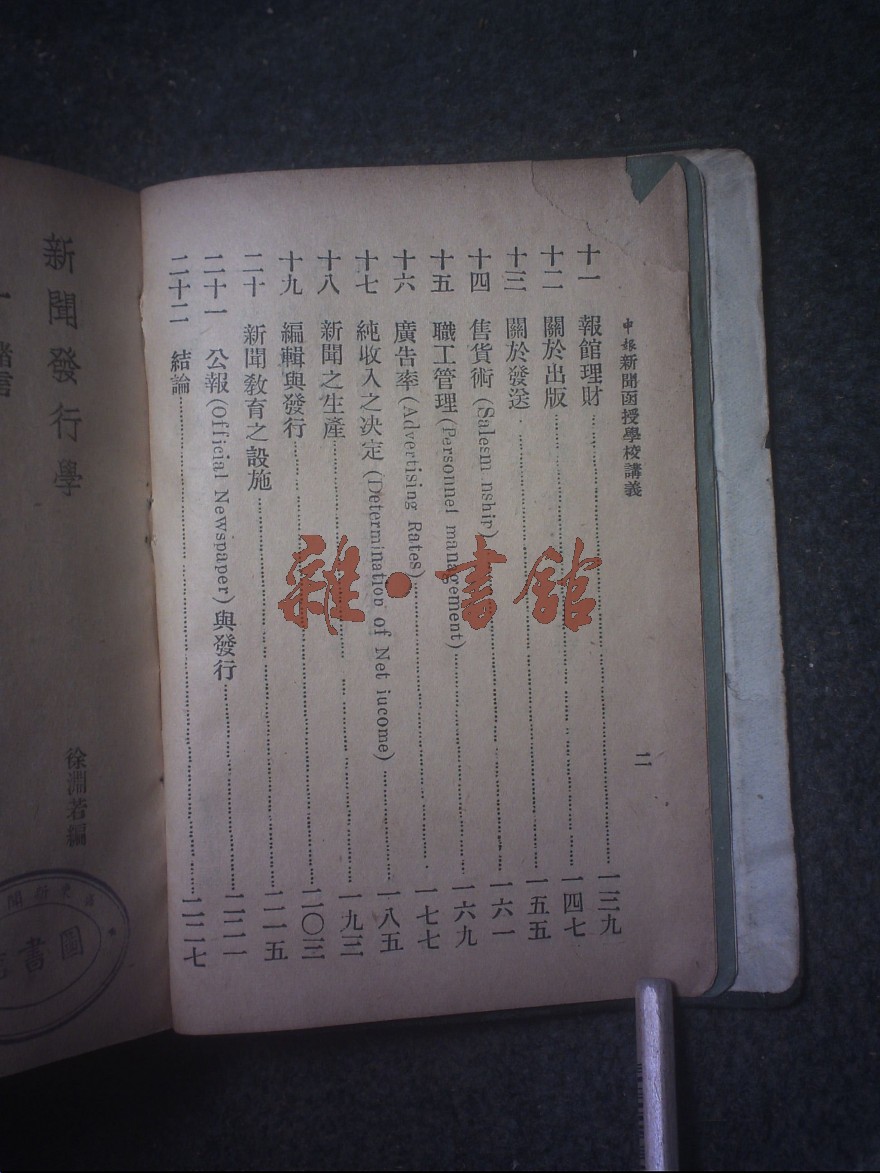 申報新聞函授學校講義
二
十一 報館理財……一三九
十二 關於出版……一四七
十三 關於發送……一五五
十四 售貨術(Salesm nship)……一六一
十五 職工管理(Personnel management)……一六九
十六 廣告率(Advertising Rates)……一七七
十七 純收入之決定(Determination of Net iucome)……一八五
十八 新聞之生產……一九三
十九 編輯與發行……二〇三
二十 新聞教育之設施……二一五
二十一 公報(Official Newspaper)與發行……二二一
二十二 結論……二二七
新聞發行學
徐淵若編
圖書
雜·書館